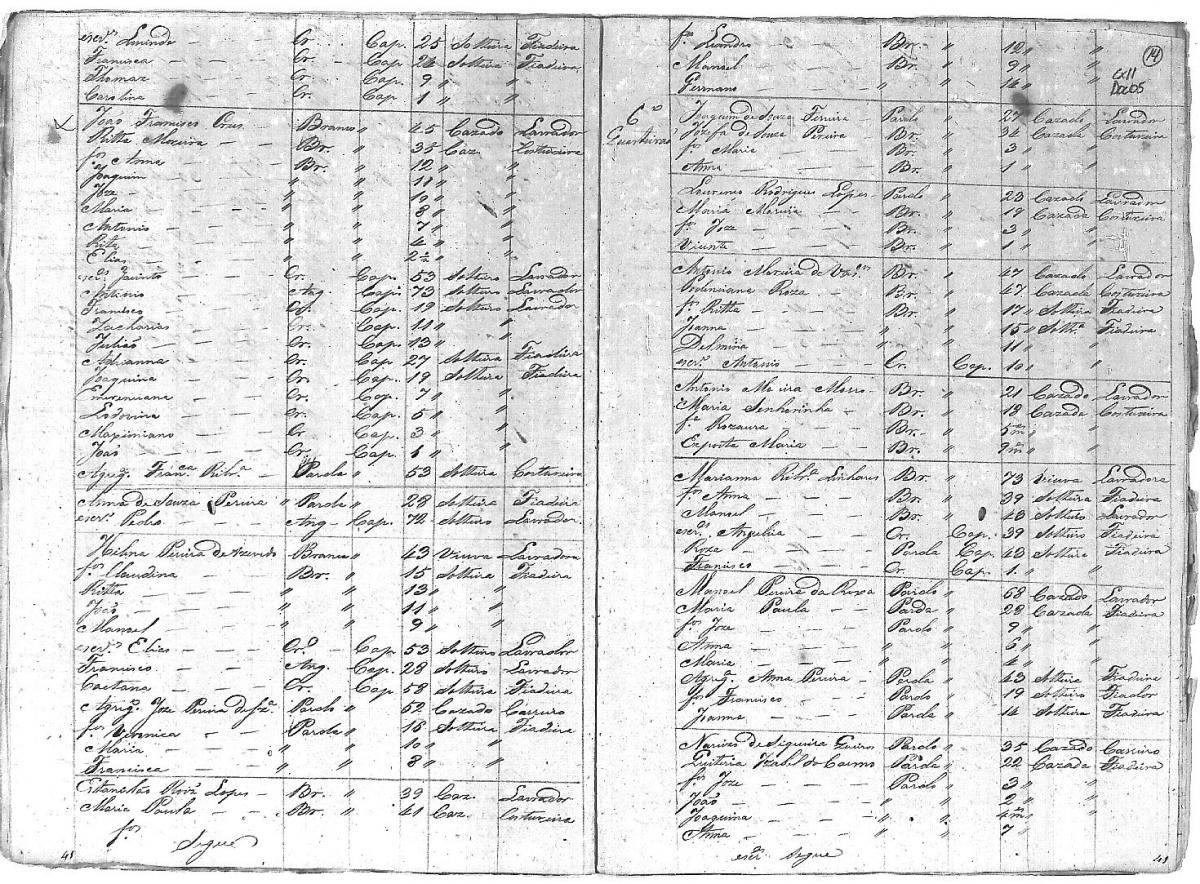 escr.ª Luinda Cr. Cap. 25 Solteira Fiadeira
Francisca Cr. Cap. 24 Solteira Fiadeira
Thomaz Cr. Cap 9 "
Carolina Cr. Cap 1 " "
João Francisco Cruz Branco " 45 Cazado Lavrador
Ritta Moreira Br. " 35 Caz. Costureira
f.os Anna Br. " 12 "
Joaquim " " 11 " "
Joze " " 10 " "
Maria " " 8 " "
Antonio " " 7 " "
Rita " " 4 " "
Elias " " 2½ "
escr.os Jacinto Cr. Cap. 53 Solteiro Lavrador
Antonio Ang. Cap. 73 Solteiro Lavrador
Francisco Cap. 19 Solteiro Lavrador
Zacharias Cr. Cap. 11 " "
Julião Cr. Cap. 13 " "
Adrianna Cr. Cap 27 Solteira Fiadeira
Joaquina Cr. Cap. 19 Solteira Fiadeira
Cr. Cap. 7 " "
Lodovina Cr. Cap. 5 " "
Maximiano Cr. Cap. 3 " "
João Cr. Cap. 1 " "
Agreg. Fran.ca Rib.ª Parda " 53 Solteira Costureira
Anna de Souza Pereira " Parda " 28 Solteira Fiadeira
escr.º Pedro Ang. Cap. 72 Solteiro Lavrador
Helena Pereira de Azevedo Branca " 43 Viuva Lavradora
f.os Claudina Br. " 15 Solteira Fiadeira
Ritta " " 13 "
João " " 11 "
Manoel " " 9 "
escr.os Elias Cr.º Cap. 53 Solteiro Lavrador
Francisco Ang. Cap. 28 Solteiro Lavrador
Caetana Cr. Cap. 58 Solteira Fiadeira
Agreg. Joze Pereira Pardo " 52 Cazado Carreiro
f.os Veronica Parda " 16 Solteira Fiadeira
Maria " " 10 " "
Francisca " " 8 " "
Estanislao Roiz Lopes Br. " 39 Caz. Lavrador
Maria Paula Br. " 41 Caz. Costureira
f.os Segue
41
14
Cx11
Doc05
f.os Leandro Br. " 12 " "
Manoel Br. " 9 " "
Germano " " 14 " "
6º
Quarteirão
Joaquim de Souza Pereira Pardo " 27 Cazado Lavrador
Jozefa de Souza Pereira Br. " 34 Cazada Costureira
f.as Maria Br. " 3 "
Anna Br. " 1 " "
Lourenço Rodrigues Lopes Pardo " 23 Cazado Lavrador
Maria Moreira Br. " 19 Cazada Costureira
f.os Joze Br. " 3 "
Vicente Br. " 1 " "
Antonio Moreira de Br. " 47 Cazado Lavrador
Roza Br. " 47 Cazada Costureira
f.as Ritta Br. " 17 Solteira Fiadeira
Joanna " " 15 Solt.ª Fiadeira
Delmira " " 11 "
escr.º Antonio Cr. Cap. 10 " "
Antonio Br. " 21 Cazado Lavrador
Maria Senhorinha Br. " 18 Cazada Costureira
f.ª Rozaura Br. " 5m "
Exposta Maria Br. " 9m "
Marianna Rib.ª Linhares Br. " 73 Viuva Lavradora
f.os Anna Br. " 39 Solteira Fiadeira
Manoel Br. " 43 Solteiro Lavrador
escr.os Cr. Cap. 39 Solteiro Fiadeira
Roza Parda Cap. 43 Solteira Fiadeira
Francisco Cr. Cap. 1 " "
Manoel Pereira da Roxa Pardo " 58 Cazado Lavrador
Maria Paula Parda " 28 Cazada Fiadeira
f.os Joze Pardo " 9 " "
Anna " " 6 " "
Maria " " 4 " "
Agreg. Anna Pereira Parda " 43 Solteira Fiadeira
f.os Francisco Pardo " 19 Solteiro Fiador
Joanna Parda " 14 Solteira Fiadeira
Narizo de Siqueira Pardo " 35 Cazado
Quiteria Izabel do Carmo Parda " 22 Cazada Fiadeira
f.os Joze Pardo " 3 " "
João " " 2 " "
Joaquina " " 4m "
Anna " " 7 "
escr. Segue
41